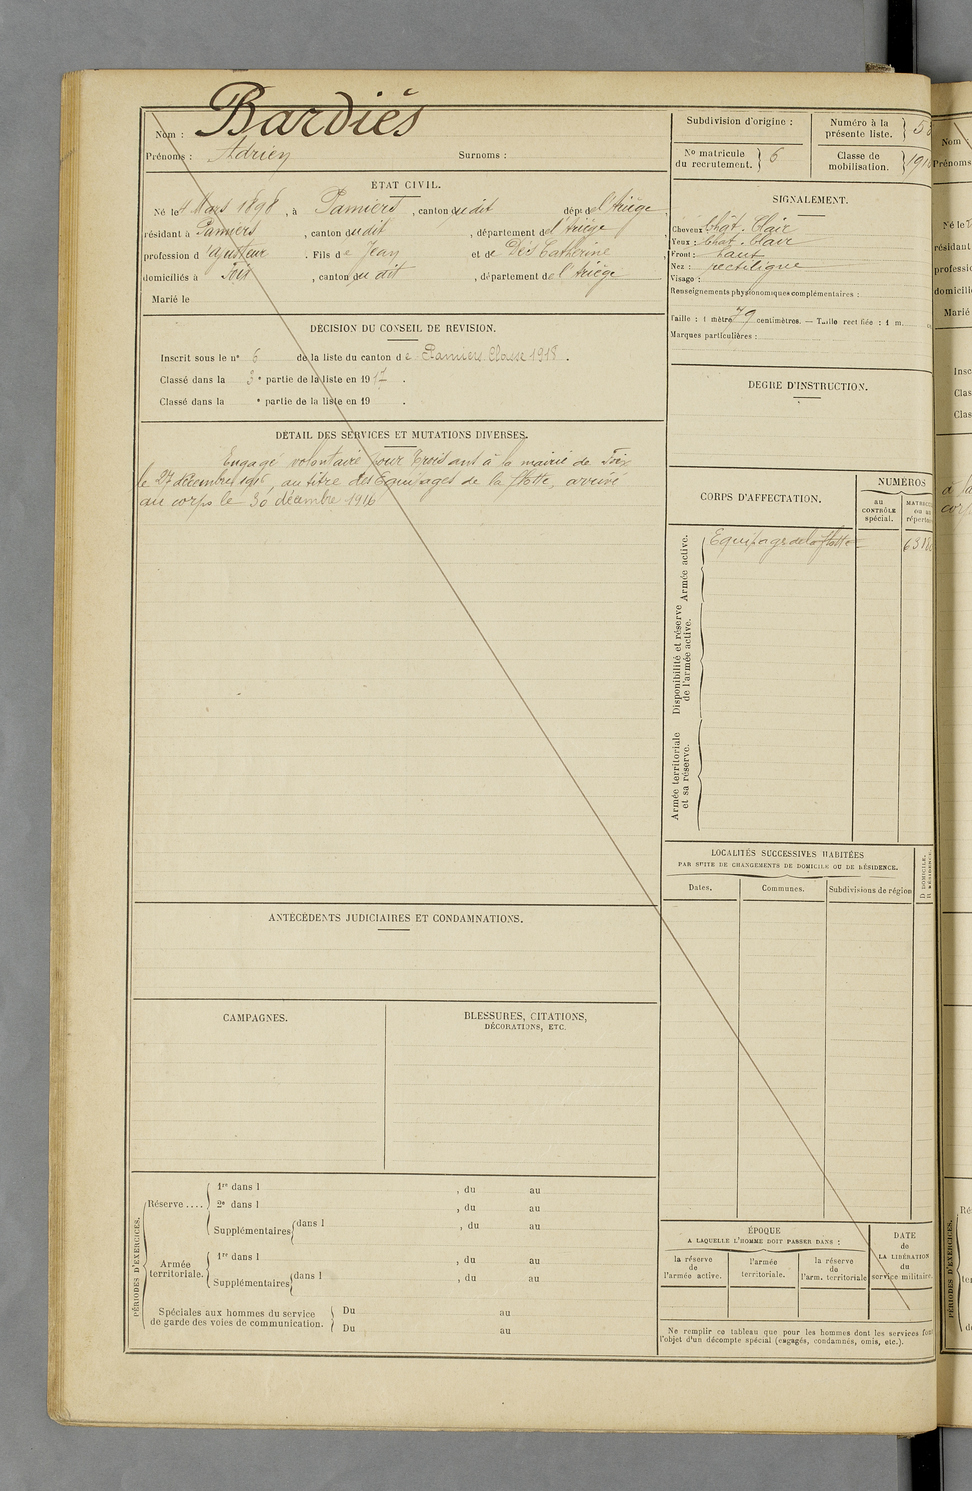 Nom : Bardiés
Prénoms : Adrien Surnoms :
ÉTAT CIVIL.
Né le 4 Mars 1898, à Pamiers, canton dudit dépt de l'Ariège,
résidant à Pamiers, canton dudit, département de l'Ariège,
profession d'ajusteur. Fils de Jean et de Dès Catherine,
domiciliés à Foix, canton du dit, département de l'Ariège
Marié le
DÉCISION DU CONSEIL DE REVISION.
Inscrit sous le n° 6 de la liste du canton de Pamiers Classe 1918.
Classé dans la 3e partie de la liste en 1917.
Classé dans la e partie de la liste en 19 .
DÉTAIL DES SERVICES ET MUTATIONS DIVERSES.
Engagé volontaire pour trois ans à la mairie de Foix
le 27 décembre 1916, au titre des Equipages de la flotte, arrivé
au corps le 30 décembre 1916
ANTÉCÉDENTS JUDICIAIRES ET CONDAMNATIONS.
CAMPAGNES.
BLESSURES, CITATIONS,
DÉCORATIONS, ETC.
PÉRIODES D'EXERCICES.
Réserve ....
1re dans l , du au
2e dans l , du au
Supplémentaires dans l , du au
Armée
territoriale.
1re dans l , du au
Supplémentaires dans l , du au
Spéciales aux hommes du service
de garde des voies de communication.
Du au
Du au
Subdivision d'origine :
Numéro à la
présente liste.
N° matricule
du recrutement. 6
Classe de
mobilisation.
SIGNALEMENT.
Cheveux Chât. Clair
Yeux : Chat. Clair
Front : haut
Nez : rectiligne
Visage :
Renseignements physionomiques complémentaires :
Taille : 1 mètre 79 centimètres. — Taille rectifiée : 1 m.
Marques particulières :
DEGRÉ D'INSTRUCTION.
CORPS D'AFFECTATION.
NUMÉROS
au
CONTRÔLE
spécial.
Armée active.
Equipage de la flotte
Disponibilité et réserve
de l'armée active.
Armée territoriale
et sa réserve.
LOCALITÉS SUCCESSIVES HABITÉES
PAR SUITE DE CHANGEMENTS DE DOMICILE OU DE RÉSIDENCE.
Dates. Communes. Subdivisions de région
D DOMICILE.
ÉPOQUE
A LAQUELLE L'HOMME DOIT PASSER DANS :
la réserve
de
l'armée active.
l'armée
territoriale.
la réserve
de
l'arm. territoriale
DATE
de
LA LIBÉRATION
du
service militaire.
Ne remplir ce tableau que pour les hommes dont les services font
l'objet d'un décompte spécial (engagés, condamnés, omis, etc.).